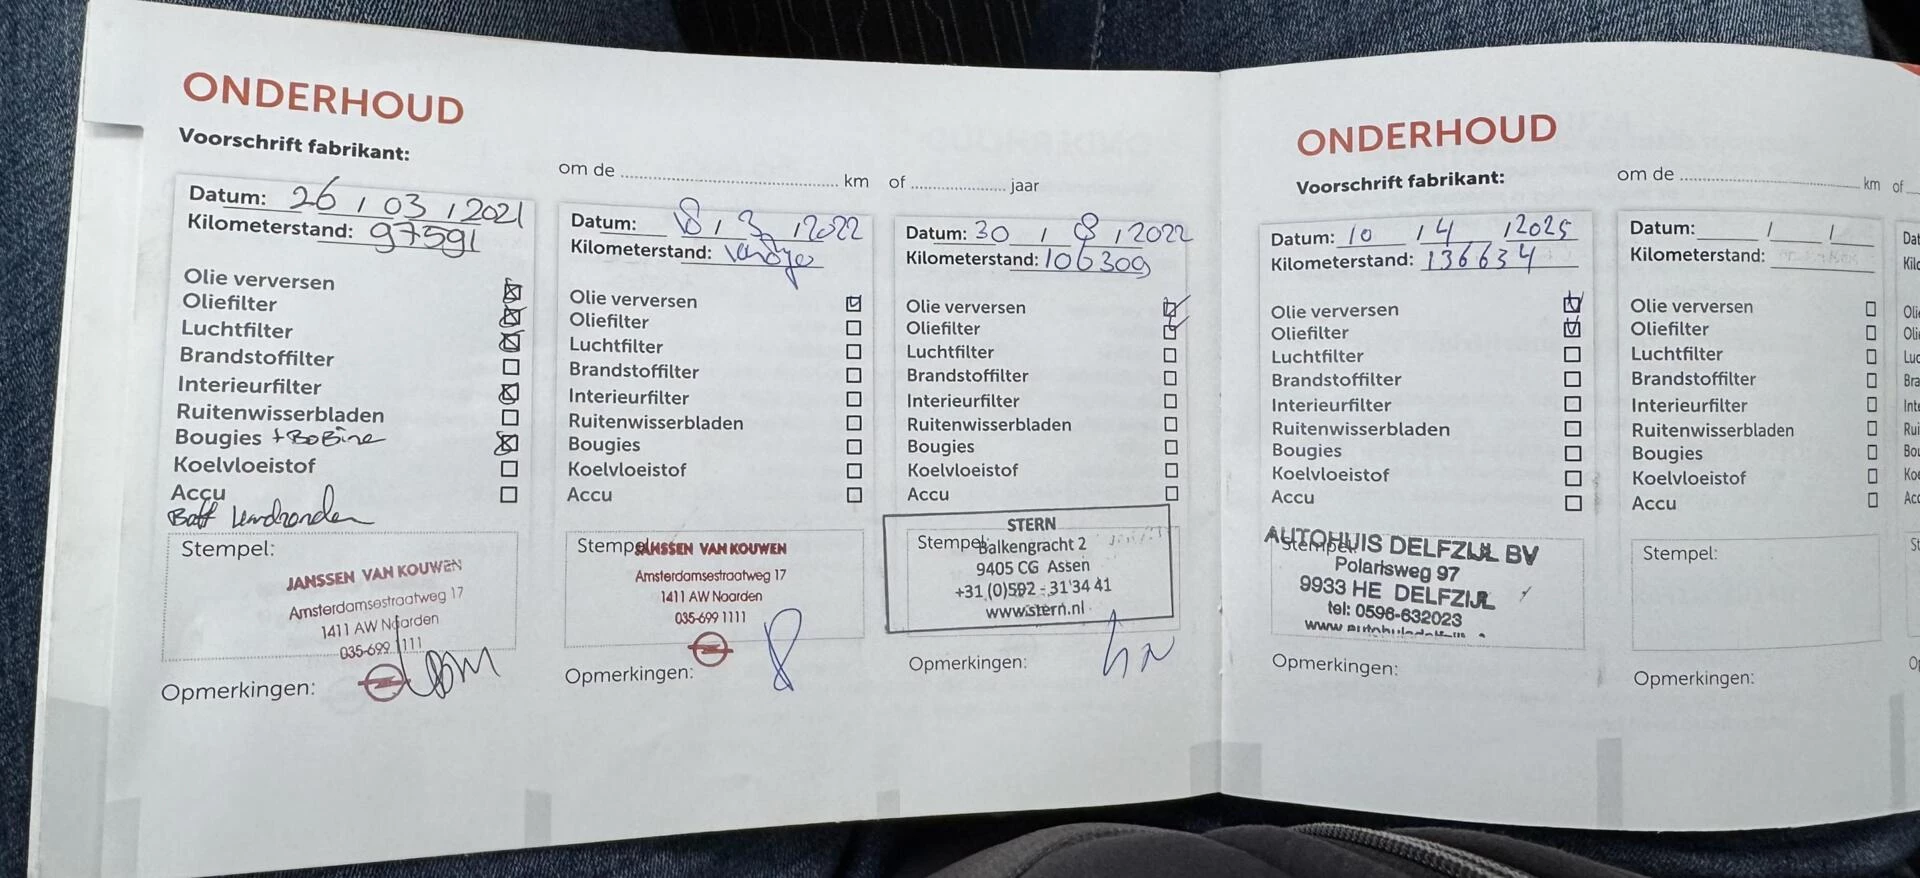 ONDERHOUD
Voorschrift fabrikant:
om de km of jaar
Datum: 26 / 03 / 2021
Kilometerstand: 97591
Olie verversen
Oliefilter
Luchtfilter
Brandstoffilter
Interieurfilter
Ruitenwisserbladen
Bougies + BoBine
Koelvloeistof
Accu
Stempel:
JANSSEN VAN KOUWEN
Amsterdamsestraatweg 17
1411 AW Naarden
035-699 1111
Opmerkingen:
Datum: 8 / 3 / 2022
Kilometerstand:
Olie verversen
Oliefilter
Luchtfilter
Brandstoffilter
Interieurfilter
Ruitenwisserbladen
Bougies
Koelvloeistof
Accu
Stempel:
JANSSEN VAN KOUWEN
Amsterdamsestraatweg 17
1411 AW Naarden
035-699 1111
Opmerkingen:
Datum: 30 / 8 / 2022
Kilometerstand: 106309
Olie verversen
Oliefilter
Luchtfilter
Brandstoffilter
Interieurfilter
Ruitenwisserbladen
Bougies
Koelvloeistof
Accu
STERN
Stempel:
Balkengracht 2
9405 CG Assen
+31 (0)592 - 31 34 41
www.stern.nl
Opmerkingen:
ONDERHOUD
Voorschrift fabrikant:
om de km of
Datum: 10 / 4 / 2025
Kilometerstand: 136634
Olie verversen
Oliefilter
Luchtfilter
Brandstoffilter
Interieurfilter
Ruitenwisserbladen
Bougies
Koelvloeistof
Accu
Stempel:
AUTOHUIS DELFZIJL BV
Polarisweg 97
9933 HE DELFZIJL
tel: 0596-632023
Opmerkingen:
Datum: / /
Kilometerstand:
Olie verversen
Oliefilter
Luchtfilter
Brandstoffilter
Interieurfilter
Ruitenwisserbladen
Bougies
Koelvloeistof
Accu
Stempel:
Opmerkingen: